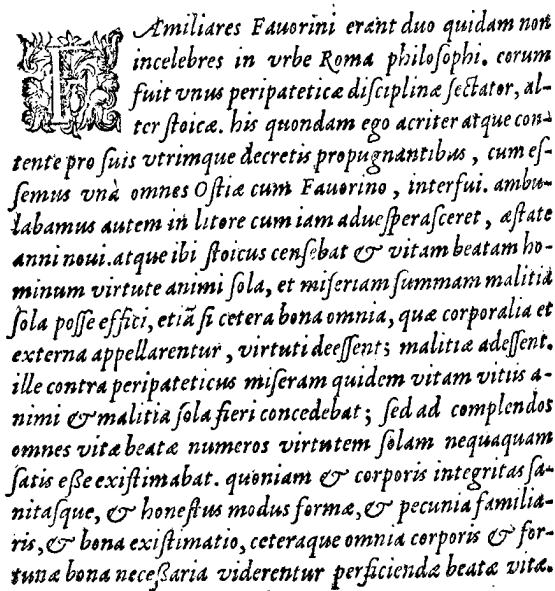 FAmiliares Fauorini erant duo quidam non
incelebres in vrbe Roma philosophi. eorum
fuit vnus peripateticæ disciplinæ sectator, al-
ter stoicæ. his quondam ego acriter atque con-
tente pro suis vtrimque decretis propugnantibus, cum es-
semus vnà omnes Ostiæ cum Fauorino, interfui. ambu-
labamus autem in litore cum iam aduesperasceret, æstate
anni noui. atque ibi stoicus censebat & vitam beatam ho-
minum virtute animi sola, et miseriam summam malitia
sola posse effici, etiā si cetera bona omnia, quæ corporalia et
externa appellarentur, virtuti deessent; malitiæ adessent.
ille contra peripateticus miseram quidem vitam vitiis a-
nimi & malitia sola fieri concedebat; sed ad complendos
omnes vitæ beatæ numeros virtutem solam nequaquam
satis eße existimabat. quoniam & corporis integritas sa-
nitasque, & honestus modus formæ, & pecunia familia-
ris, & bona existimatio, ceteraque omnia corporis & for-
tunæ bona neceßaria viderentur perficiendæ beatæ vitæ.